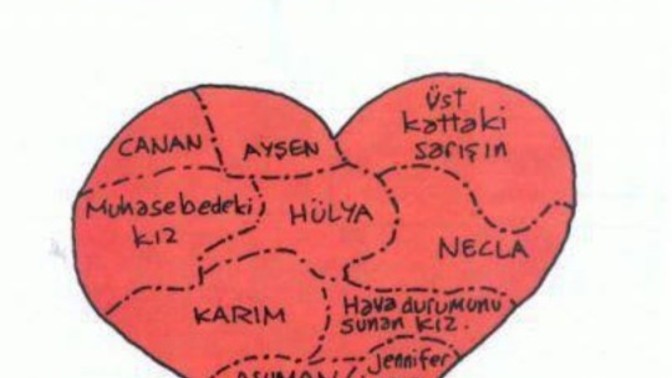 CANAN
AYŞEN
Üst
kattaki
sarışın
Muhasebedeki
kız
HÜLYA
NECLA
KARIM
Hava durumunu
sunan kız.
Jennifer